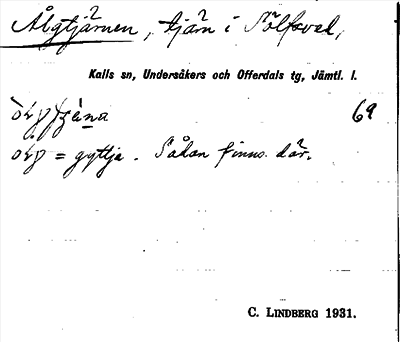 Ålgtjärnen, tjärn i Sölfsved,
Kalls sn, Undersåkers och Offerdals tg, Jämtl. l.
69
= gyttja. Sådan finns där.
C. LINDBERG 1931.